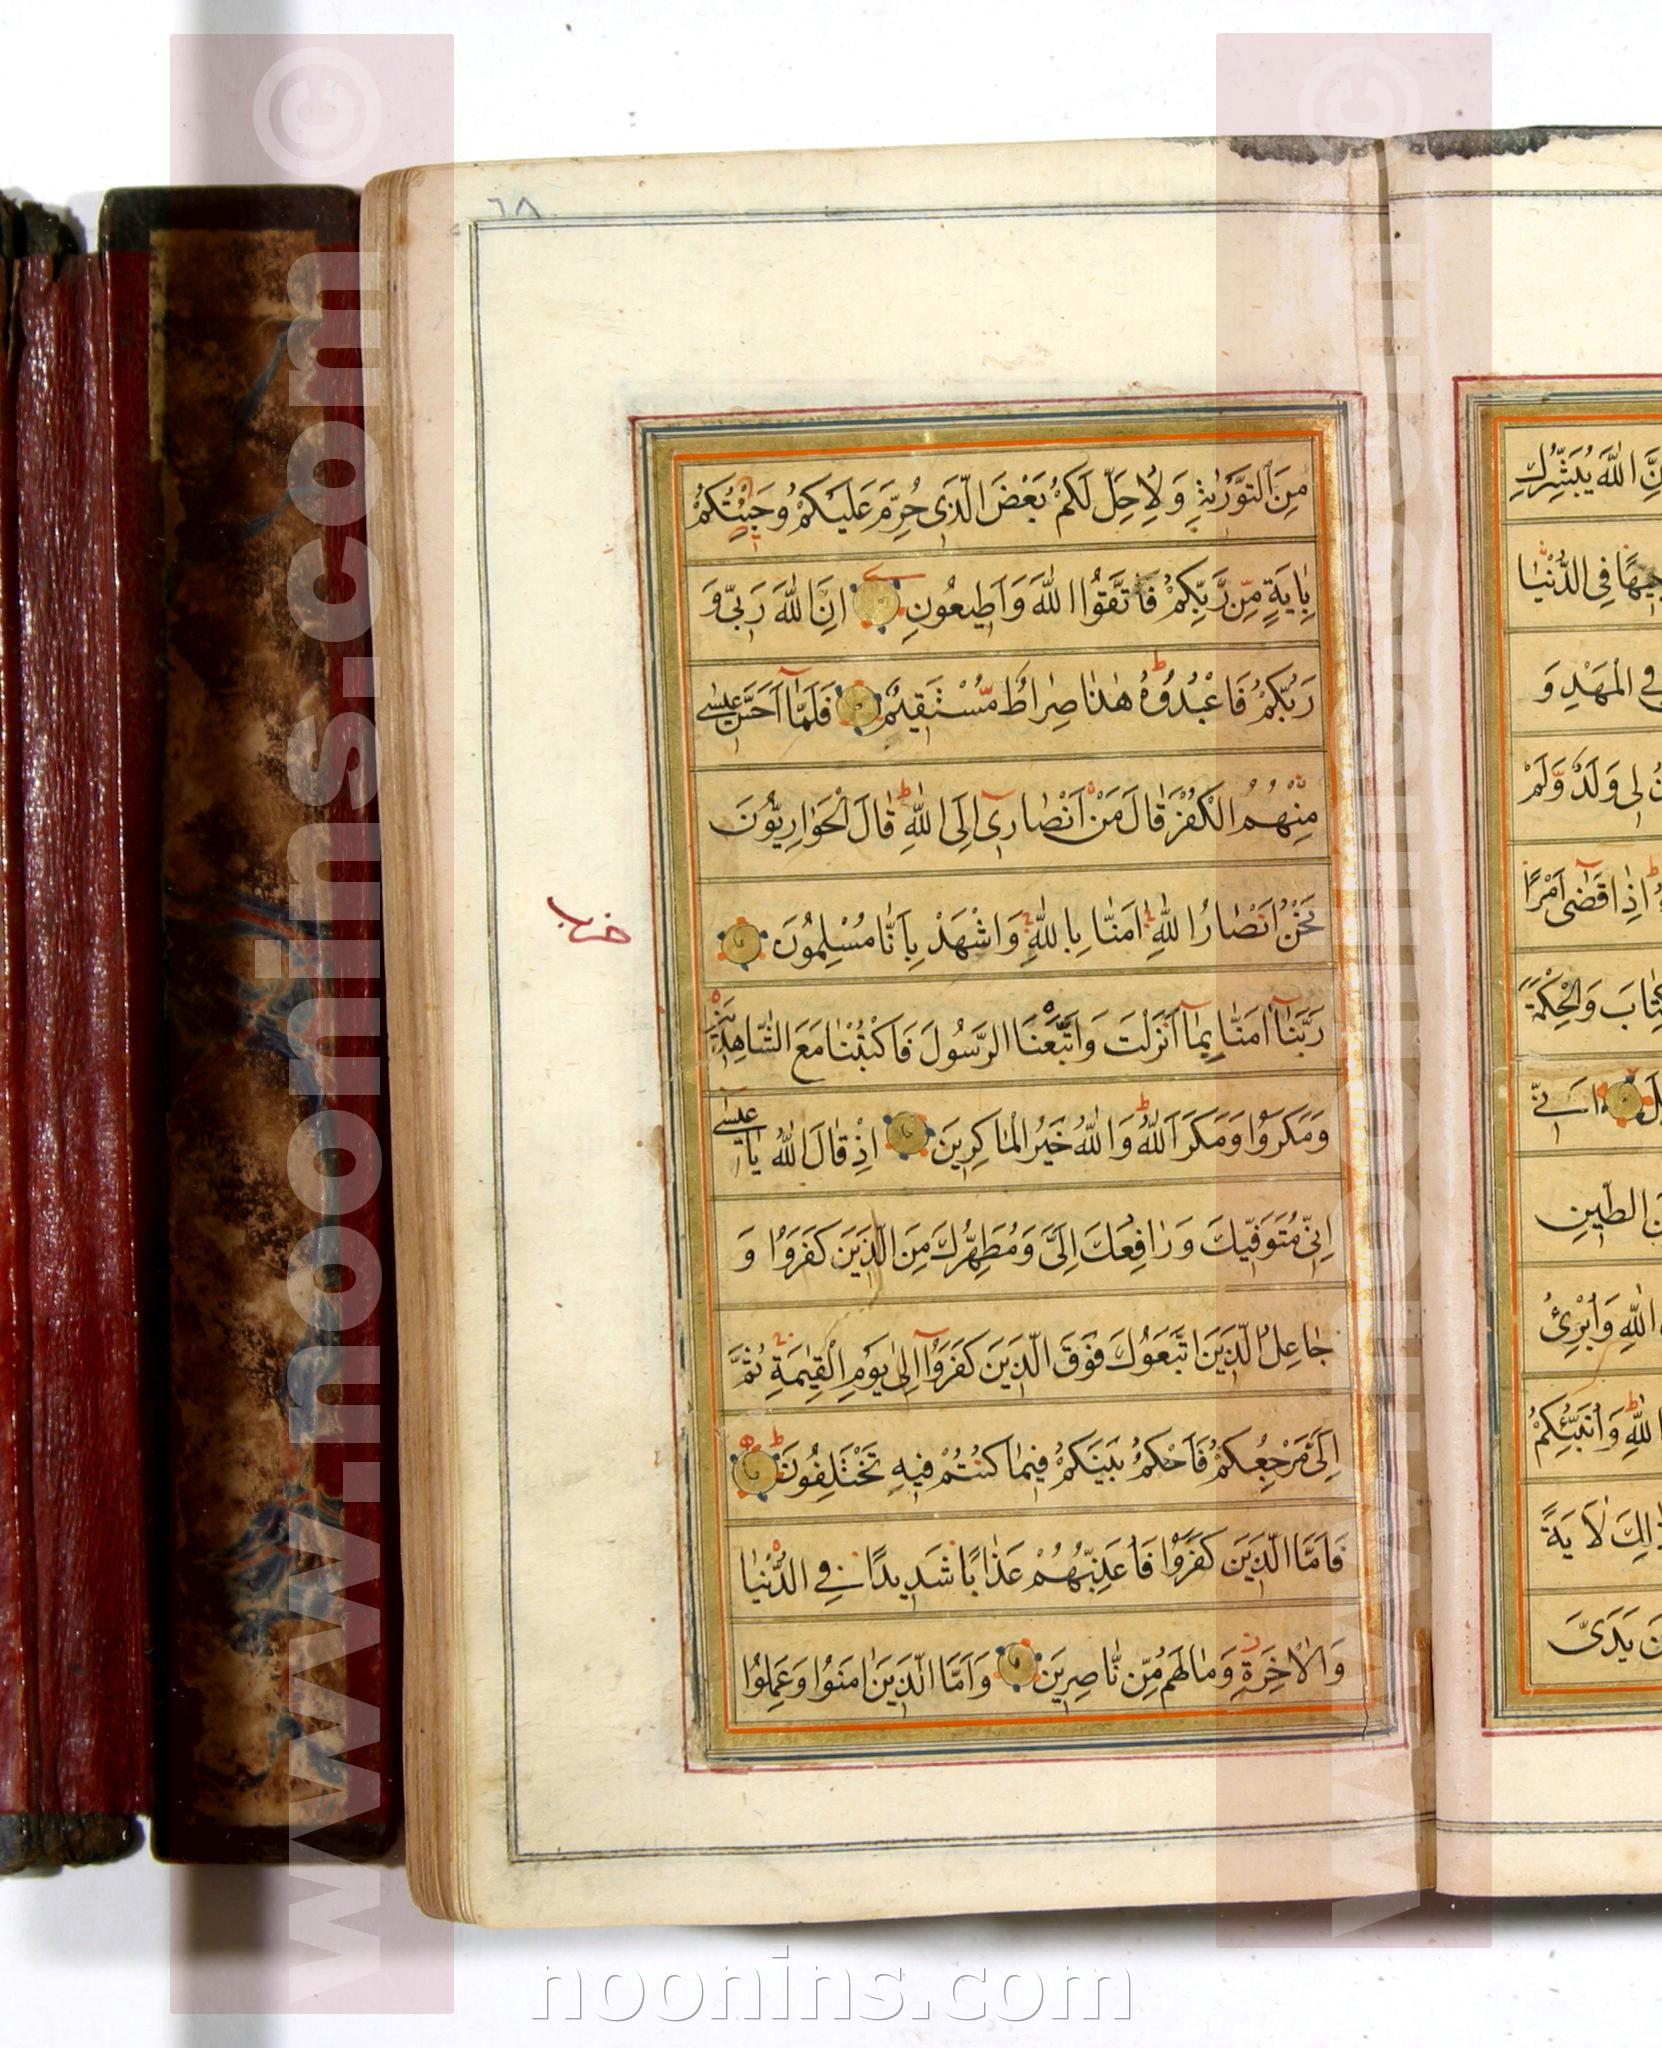 ٦٨
مِنَ التَّوْرٰيةِ وَلِاُحِلَّ لَكُمْ بَعْضَ الَّذِي حُرِّمَ عَلَيْكُمْ وَجِئْتُكُمْ
بِاٰيَةٍ مِنْ رَبِّكُمْ فَاتَّقُوا اللّٰهَ وَاَطِيعُونِ اِنَّ اللّٰهَ رَبِّي وَ
رَبُّكُمْ فَاعْبُدُوهُ هٰذٰا صِرٰاطٌ مُسْتَقِيمٌ فَلَمّٰا اَحَسَّ عِيسٰى
مِنْهُمُ الْكُفْرَ قٰالَ مَنْ اَنْصٰارِي اِلَى اللّٰهِ قٰالَ الْحَوٰارِيُّونَ
نَحْنُ اَنْصٰارُ اللّٰهِ اٰمَنّٰا بِاللّٰهِ وَاشْهَدْ بِاَنّٰا مُسْلِمُونَ
حزب
رَبَّنٰا اٰمَنّٰا بِمٰا اَنْزَلْتَ وَاتَّبَعْنَا الرَّسُولَ فَاكْتُبْنٰا مَعَ الشّٰاهِدِينَ
وَمَكَرُوا وَمَكَرَ اللّٰهُ وَاللّٰهُ خَيْرُ الْمٰاكِرِينَ اِذْ قٰالَ اللّٰهُ يٰا عِيسٰى
اِنِّي مُتَوَفِّيكَ وَرٰافِعُكَ اِلَيَّ وَمُطَهِّرُكَ مِنَ الَّذِينَ كَفَرُوا وَ
جٰاعِلُ الَّذِينَ اتَّبَعُوكَ فَوْقَ الَّذِينَ كَفَرُوا اِلٰى يَوْمِ الْقِيٰمَةِ ثُمَّ
اِلَيَّ مَرْجِعُكُمْ فَاَحْكُمُ بَيْنَكُمْ فِيمٰا كُنْتُمْ فِيهِ تَخْتَلِفُونَ
فَاَمَّا الَّذِينَ كَفَرُوا فَاُعَذِّبُهُمْ عَذٰابًا شَدِيدًا فِي الدُّنْيٰا
وَالْاٰخِرَةِ وَمٰا لَهُمْ مِنْ نٰاصِرِينَ وَاَمَّا الَّذِينَ اٰمَنُوا وَعَمِلُوا
اللّٰهَ يُبَشِّرُكِ
فِي الدُّنْيٰا
فِي الْمَهْدِ وَ
لِي وَلَدٌ وَلَمْ
اِذٰا قَضٰى اَمْرًا
وَالْحِكْمَةَ
اَنِّي
الطِّينِ
اللّٰهِ وَاُبْرِئُ
اللّٰهِ وَاُنَبِّئُكُمْ
لَاٰيَةً
يَدَيَّ
www.noonins.com
©
www.noonins.com
©
noonins.com